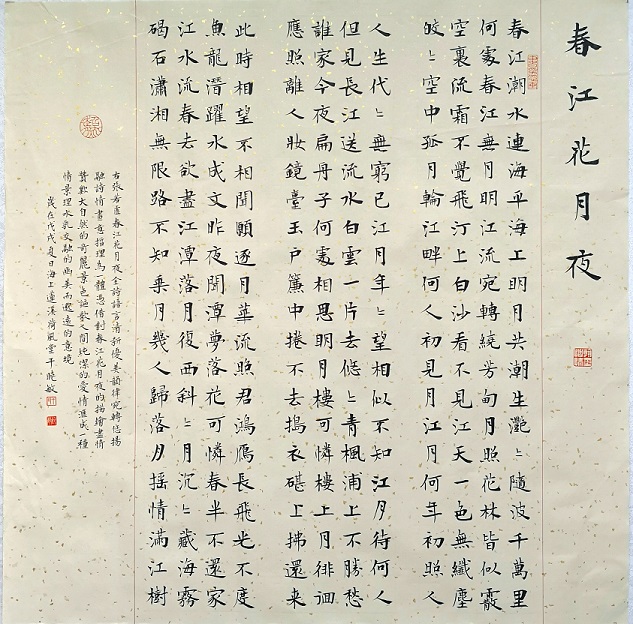 春江花月夜
春江潮水連海平海上明月共潮生灩〻隨波千萬里
何處春江無月明江流宛轉繞芳甸月照花林皆似霰
空裏流霜不覺飛汀上白沙看不見江天一色無纖塵
皎〻空中孤月輪江畔何人初見月江月何年初照人
人生代〻無窮已江月年〻望相似不知江月待何人
但見長江送流水白雲一片去悠〻青楓浦上不勝愁
誰家今夜扁舟子何處相思明月樓可憐樓上月徘徊
應照離人妝鏡臺玉戶簾中捲不去搗衣碪上拂還来
此時相望不相聞願逐月華流照君鴻鴈長飛光不度
魚龍潛躍水成文昨夜閒潭夢落花可憐春半不還家
江水流春去欲盡江潭落月復西斜〻月沉〻藏海霧
碣石瀟湘無限路不知乘月幾人歸落月摇情滿江樹
右張若虛春江花月夜全詩語言清新優美韻律宛轉悠揚
融詩情畫意哲理為一體憑借對春江花月夜的描繪盡情
贊歎大自然的奇麗景色謳歌人間純潔的愛情成一種
情景理水乳交融的幽美而邈遠的意境
歲在戊戌夏日海上蓮溪荷風堂于曉敏